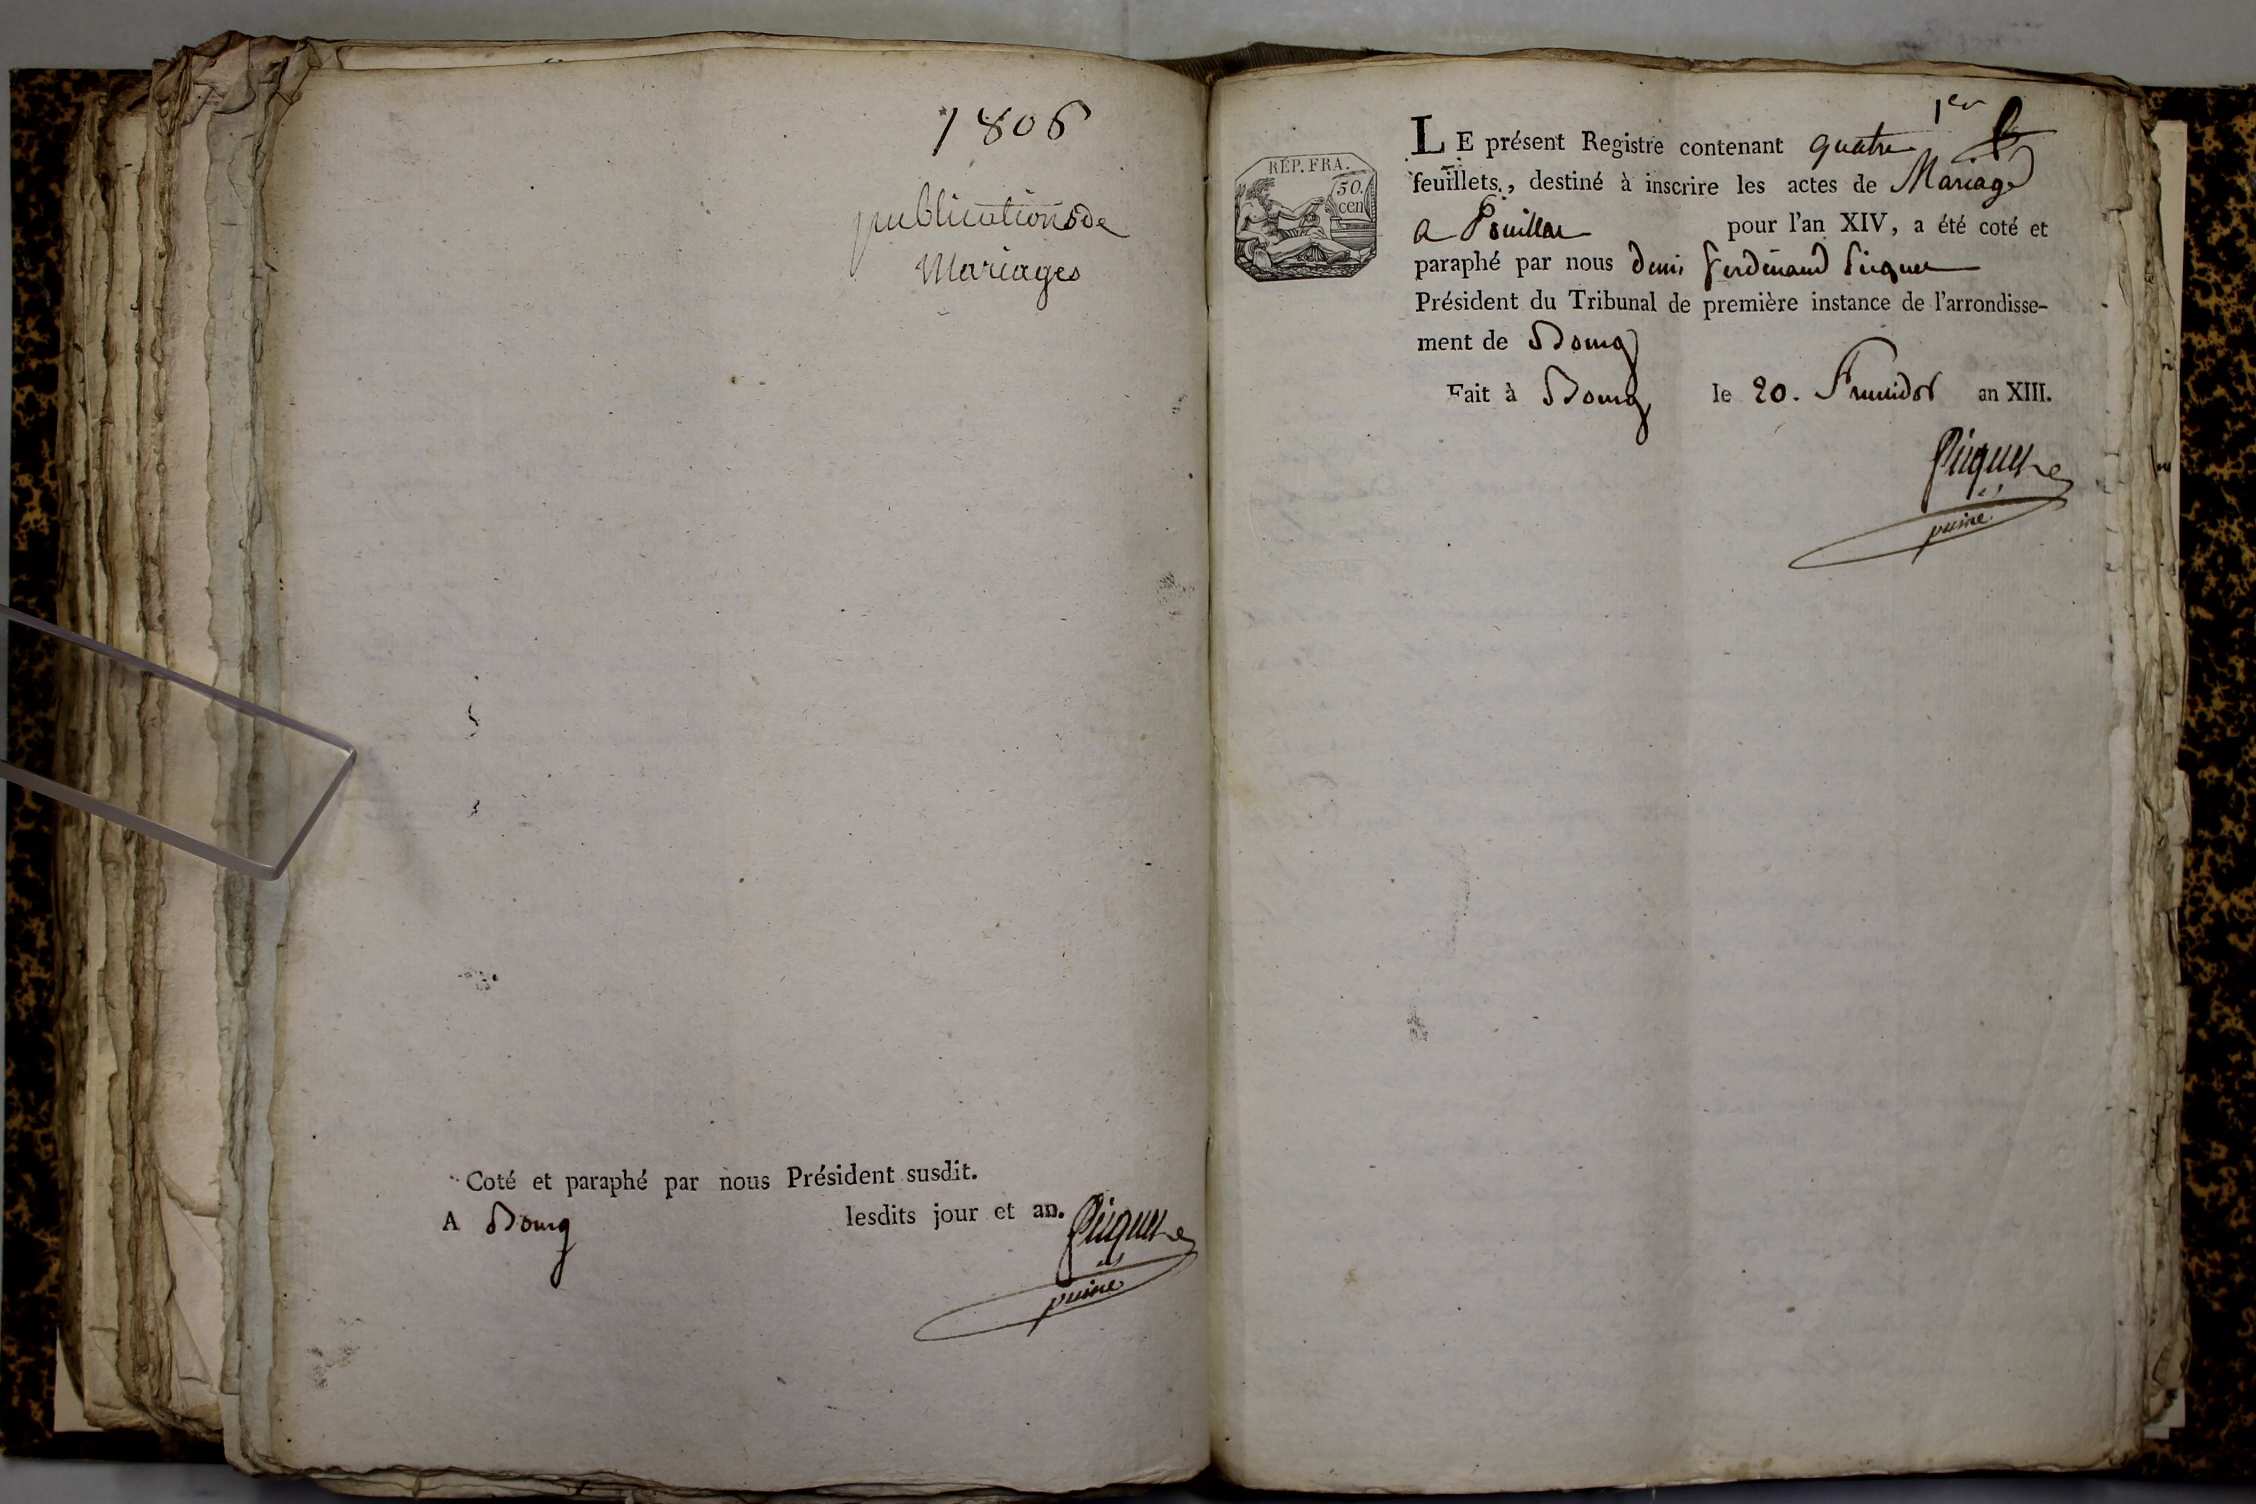 1806
publications de
Mariages
Coté et paraphé par nous Président susdit.
A Bourg lesdits jour et an.
Picquet
puiné
1er
LE présent Registre contenant quatre
feuillets, destiné à inscrire les actes de Mariage
a pour l'an XIV, a été coté et
paraphé par nous Denis Ferdinand Picquet
Président du Tribunal de première instance de l'arrondisse-
ment de Bourg
Fait à Bourg le 20. Fructidor an XIII.
Picquet
puiné
RÉP. FRA.
50.
cen